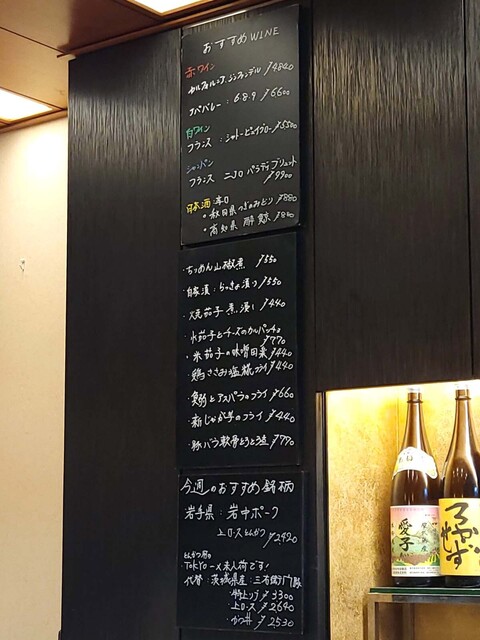 おすすめWINE
赤ワイン
カルフォルニア ジンファンデル ¥4840
ナパバレー:689 ¥6600
白ワイン
フランス:シャトー ¥5500
シャンパン
フランス ニコロ パラディ ブリュット
¥9900
日本酒:辛口 ¥880
・秋田県 つぎのみどり
・高知県 酔鯨 ¥840
・ちりめん山椒煮 ¥550
・自家漬:らっきょ漬 ¥550
・焼茄子 煮浸し ¥440
・水茄子とチーズのカルパッチョ
¥770
・米茄子の味噌田楽 ¥440
・鶏ささみ塩糀フライ ¥440
とアスパラのフライ ¥660
・新じゃが芋のフライ ¥440
・豚バラ軟骨とろとろ ¥770
今週のおすすめ銘柄
・岩手県:岩中ポーク
上ロースとんかつ
¥2420
とんかつ
・TOKYO-X未入荷です!
代替:茨城県産:三右衛門豚
・特上リブ ¥3300
・上ロース ¥2640
・かつ丼 ¥2530
愛子